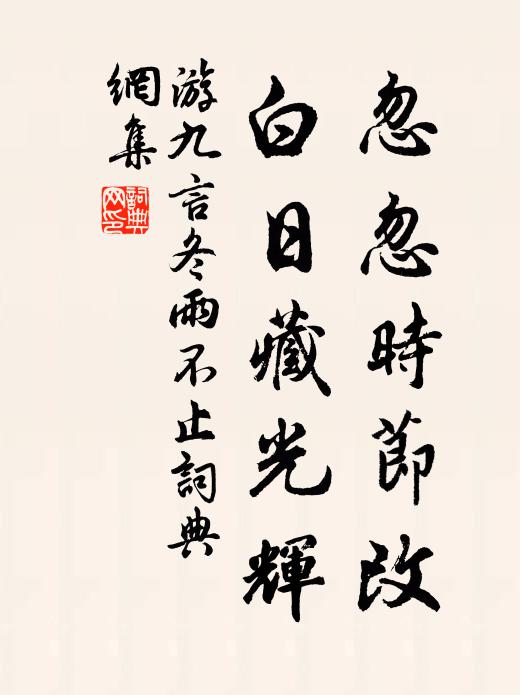 忽忽時節改
白日藏光輝
游九言冬雨不止詞典
網集
詞典網印